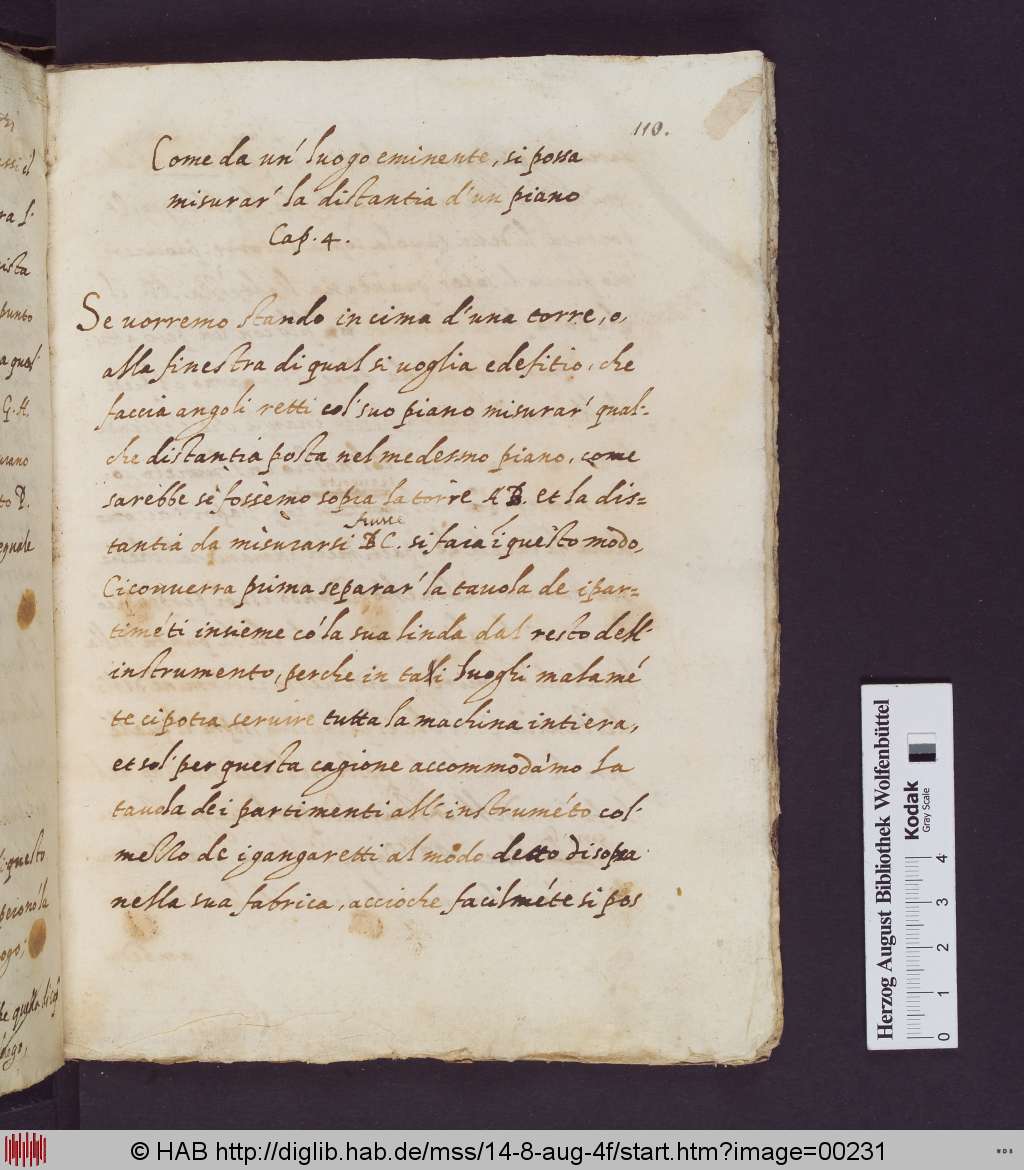 110.
Come da un' luogo eminente, si possa
misurar' la distantia d'un piano
Cap. 4.
Se uorremo stando in cima d'una torre, o,
alla finestra di qual si uoglia edefitio, che
faccia angoli retti col' suo piano misurar' qual=
che distantia posta nel medesmo piano, come
sarebbe se fossemo sopra la torre AB. et la dis=
tantia da misurarsi BC. si fara ī questo modo,
Ci conuerra prima separar' la tauola de i par=
timéti insieme có la sua linda dal resto dell'
instrumento, perche in tali luoghi malamé
te ci potra seruire tutta la machina intiera,
et sol' per questa cagione accommodámo la
tauola dei partimenti all' instruméto col'
mello de i gangaretti al modo detto di sopra
nella sua fabrica, accioche facilméte si pos
ista
punto
G. H.
eguale
questo
Herzog August Bibliothek Wolfenbüttel
Kodak
Gray Scale
0 1 2 3 4
© HAB http://diglib.hab.de/mss/14-8-aug-4f/start.htm?image=00231